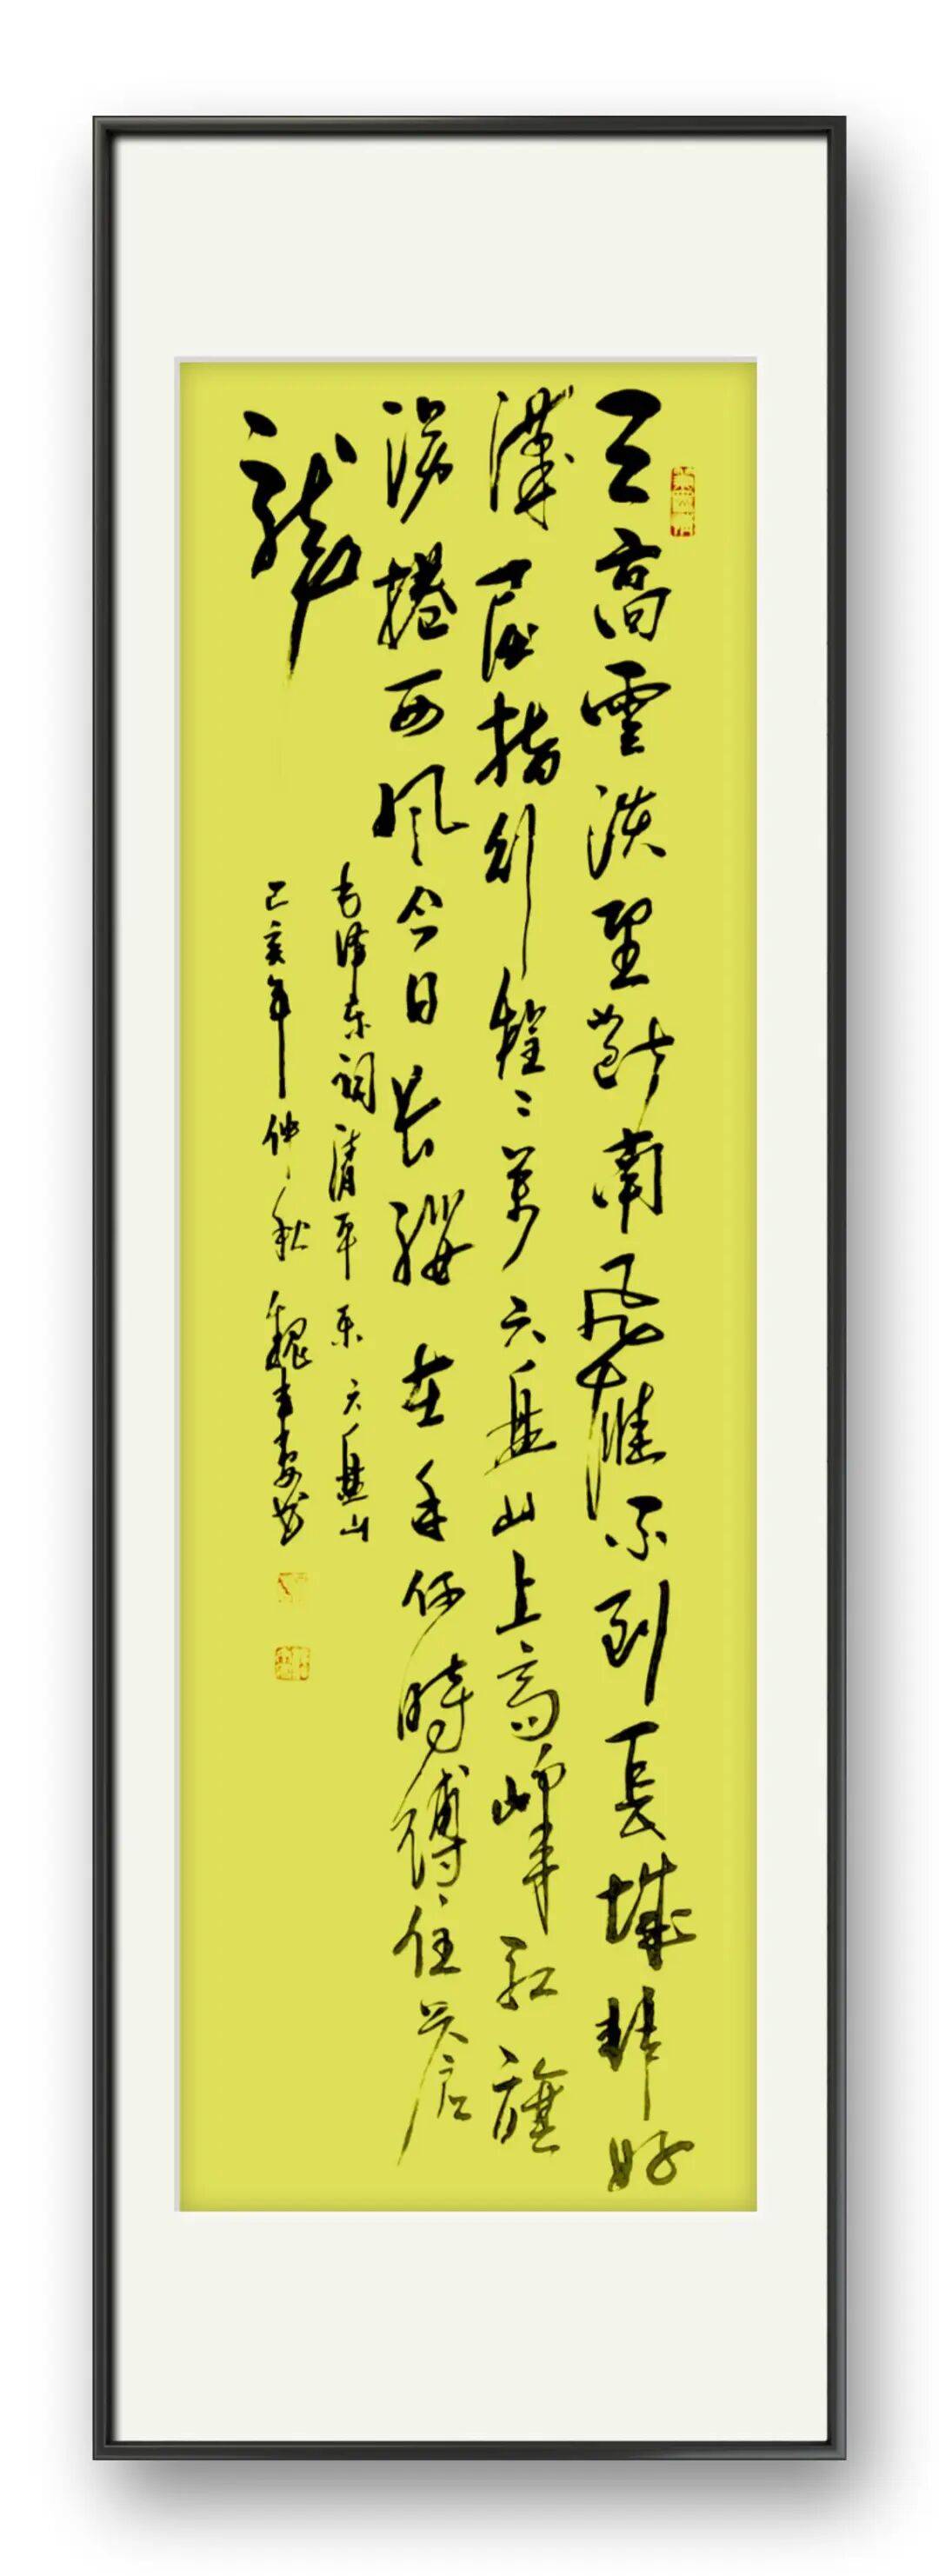 天高雲淡望斷南飛雁不到長城非好
漢屈指行程二萬六盘山上高峰紅旗
漫捲西風今日长纓在手何時縛住蒼
龍
毛泽东词清平乐六盘山
己亥年仲秋魏书